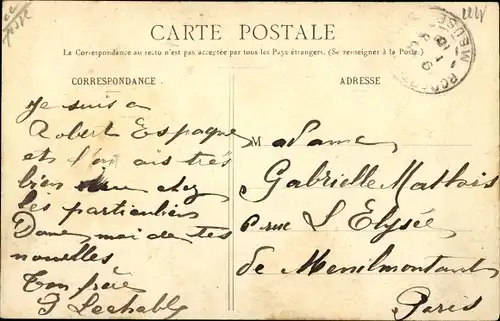 CARTE POSTALE
La Correspondance au recto n'est pas acceptée par tous les Pays étrangers. (Se renseigner à la Poste.)
CORRESPONDANCE
Je suis a
Robert Espagne
et l'on ais très
bien chez
les particuliers
Donne moi de tes
nouvelles
Ton frère
ADRESSE
Madame
Gabrielle
6 rue L'Elysée
de Menilmontant
Paris
MEUSE